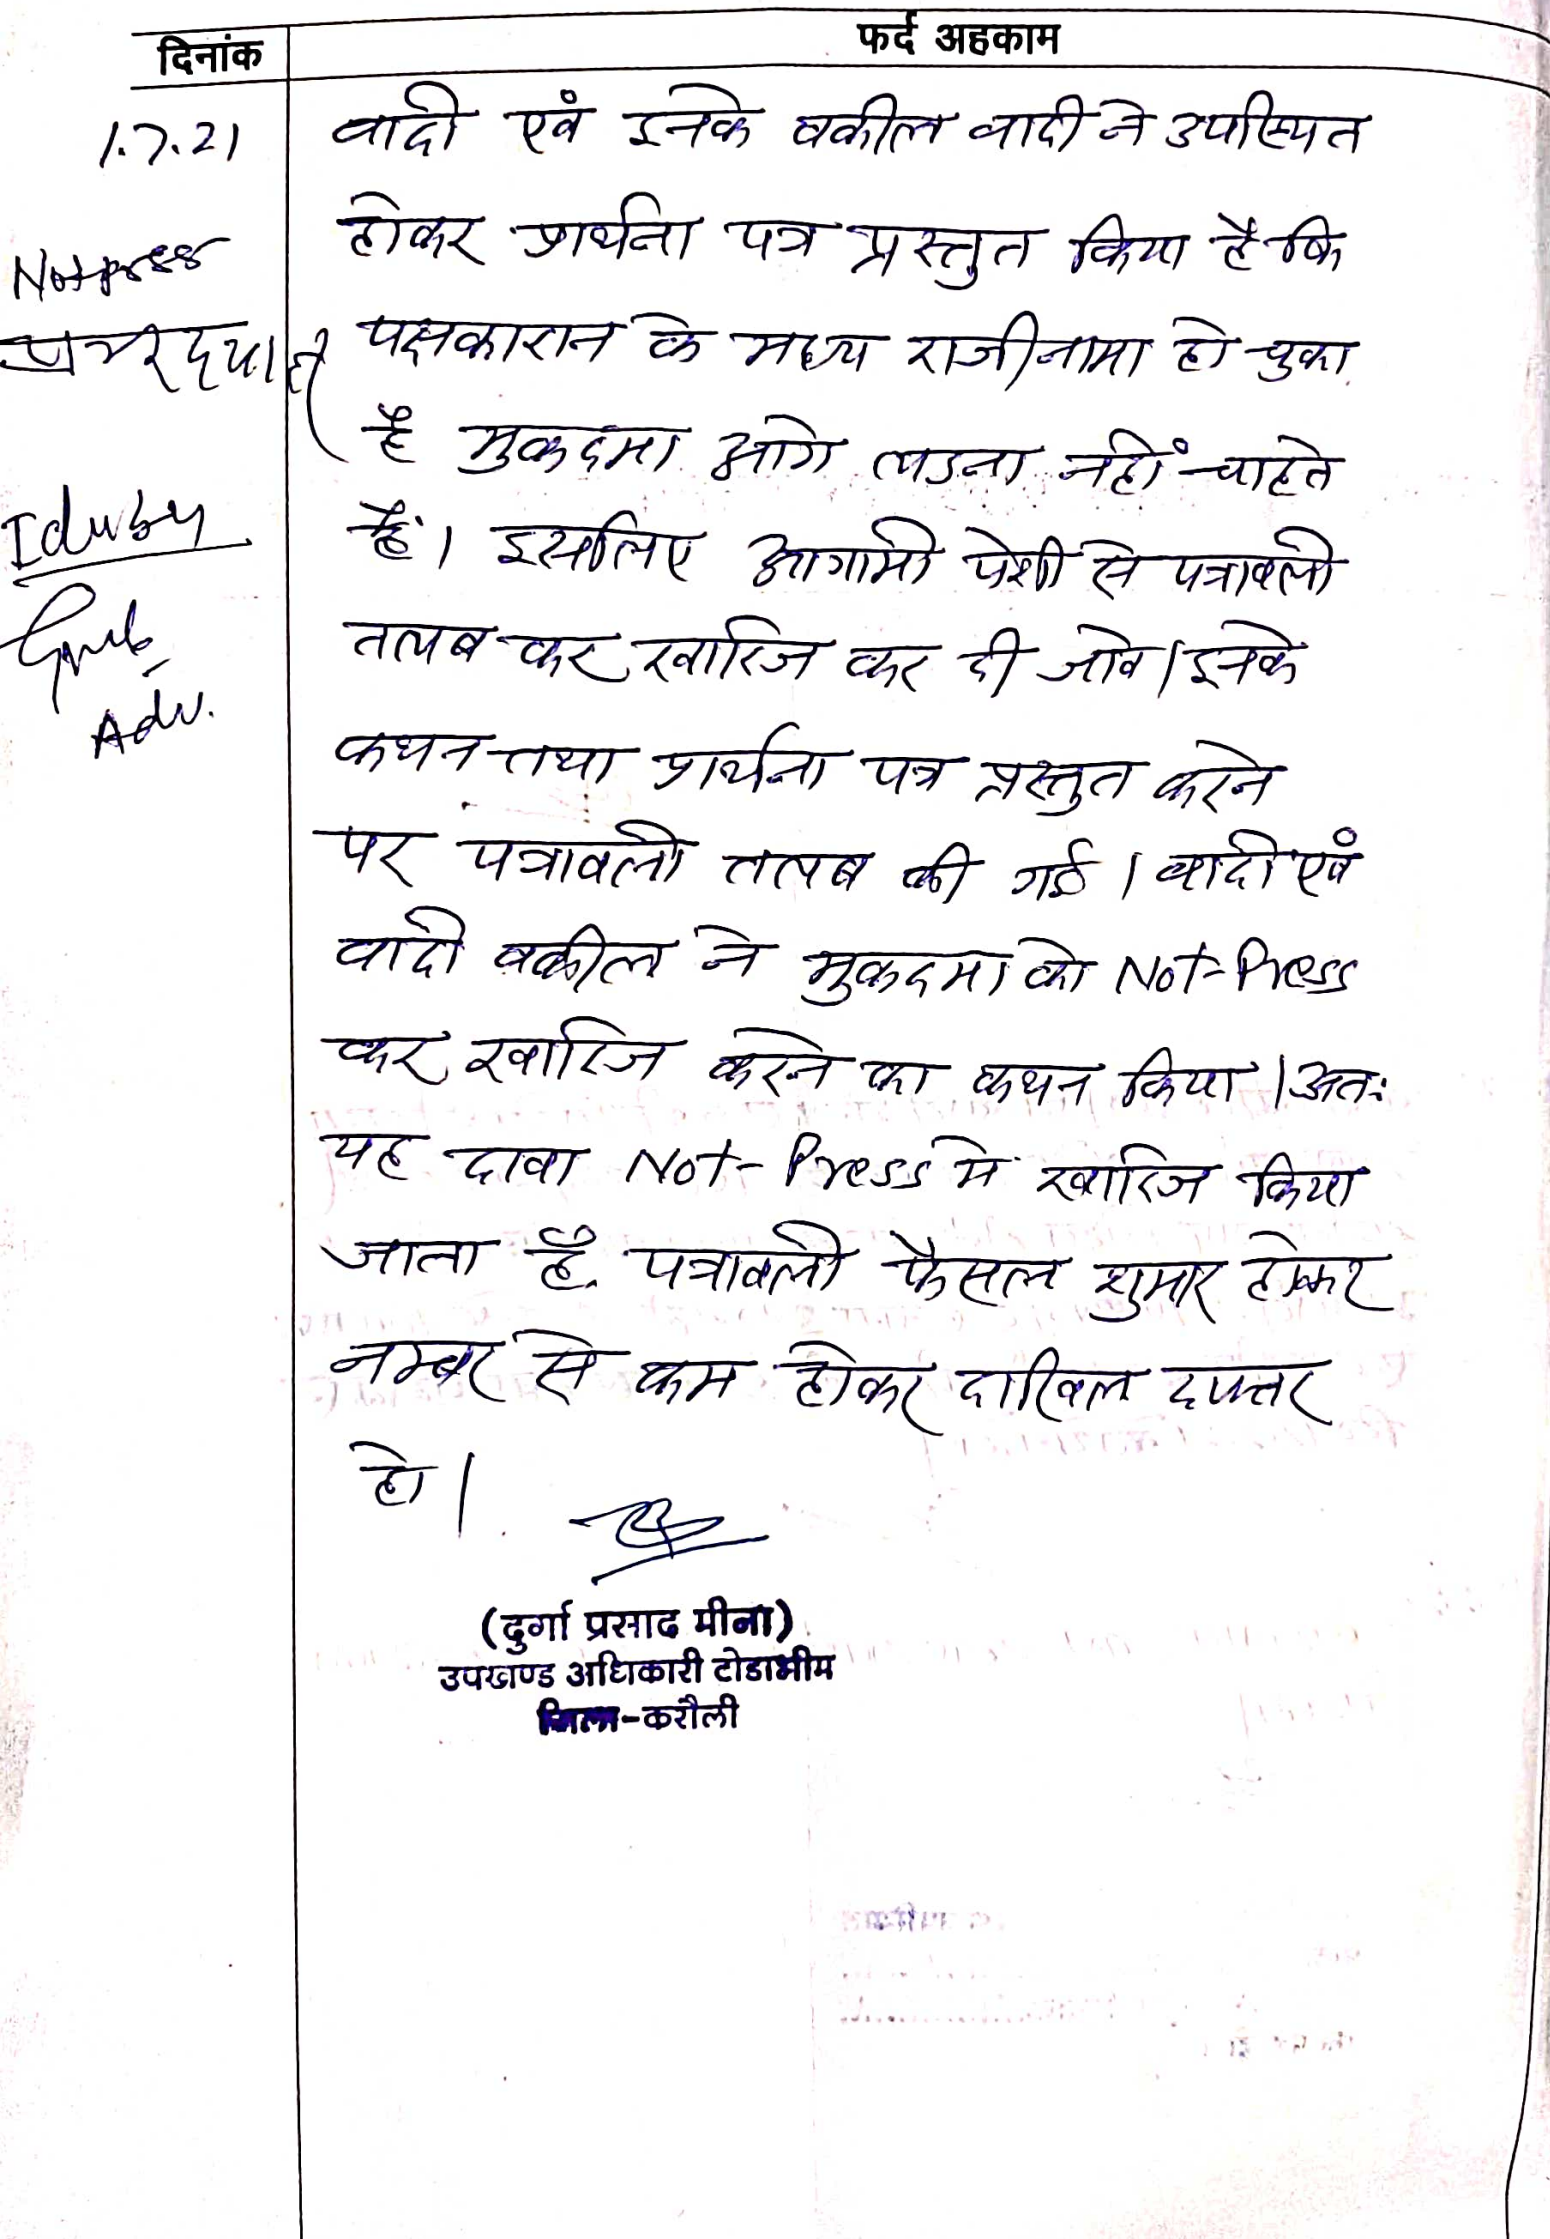 दिनांक
फर्द अहकाम
1.7.21
वादी एवं इनके वकील वादी ने उपस्थित
होकर प्रार्थना पत्र प्रस्तुत किया है कि
पक्षकारान के मध्य राजीनामा हो चुका
है मुकदमा आगे लडना नहीं चाहते
हैं। इसलिए आगामी पेशी से पत्रावली
तलब कर खारिज कर दी जावे। इनके
कथन तथा प्रार्थना पत्र प्रस्तुत करने
पर पत्रावली तलब की गई। वादी एवं
वादी वकील ने मुकदमा को Not-Press
कर खारिज करने का कथन किया। अतः
यह दावा Not-Press मे खारिज किया
जाता है. पत्रावली फैसल शुमार होकर
नम्बर से कम होकर दाखिल दफ्तर
हो।
Notpress
Idn by
Adv.
(दुर्गा प्रसाद मीना)
उपखण्ड अधिकारी टोडाभीम
जिला-करौली